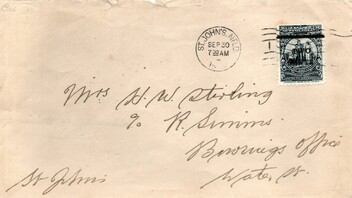 ST. JOHN'S, NFLD
SEP 30
7 AM
Mrs H. W. Stirling
℅ R. Simms
Bowrings Office
Water St.
St Johns